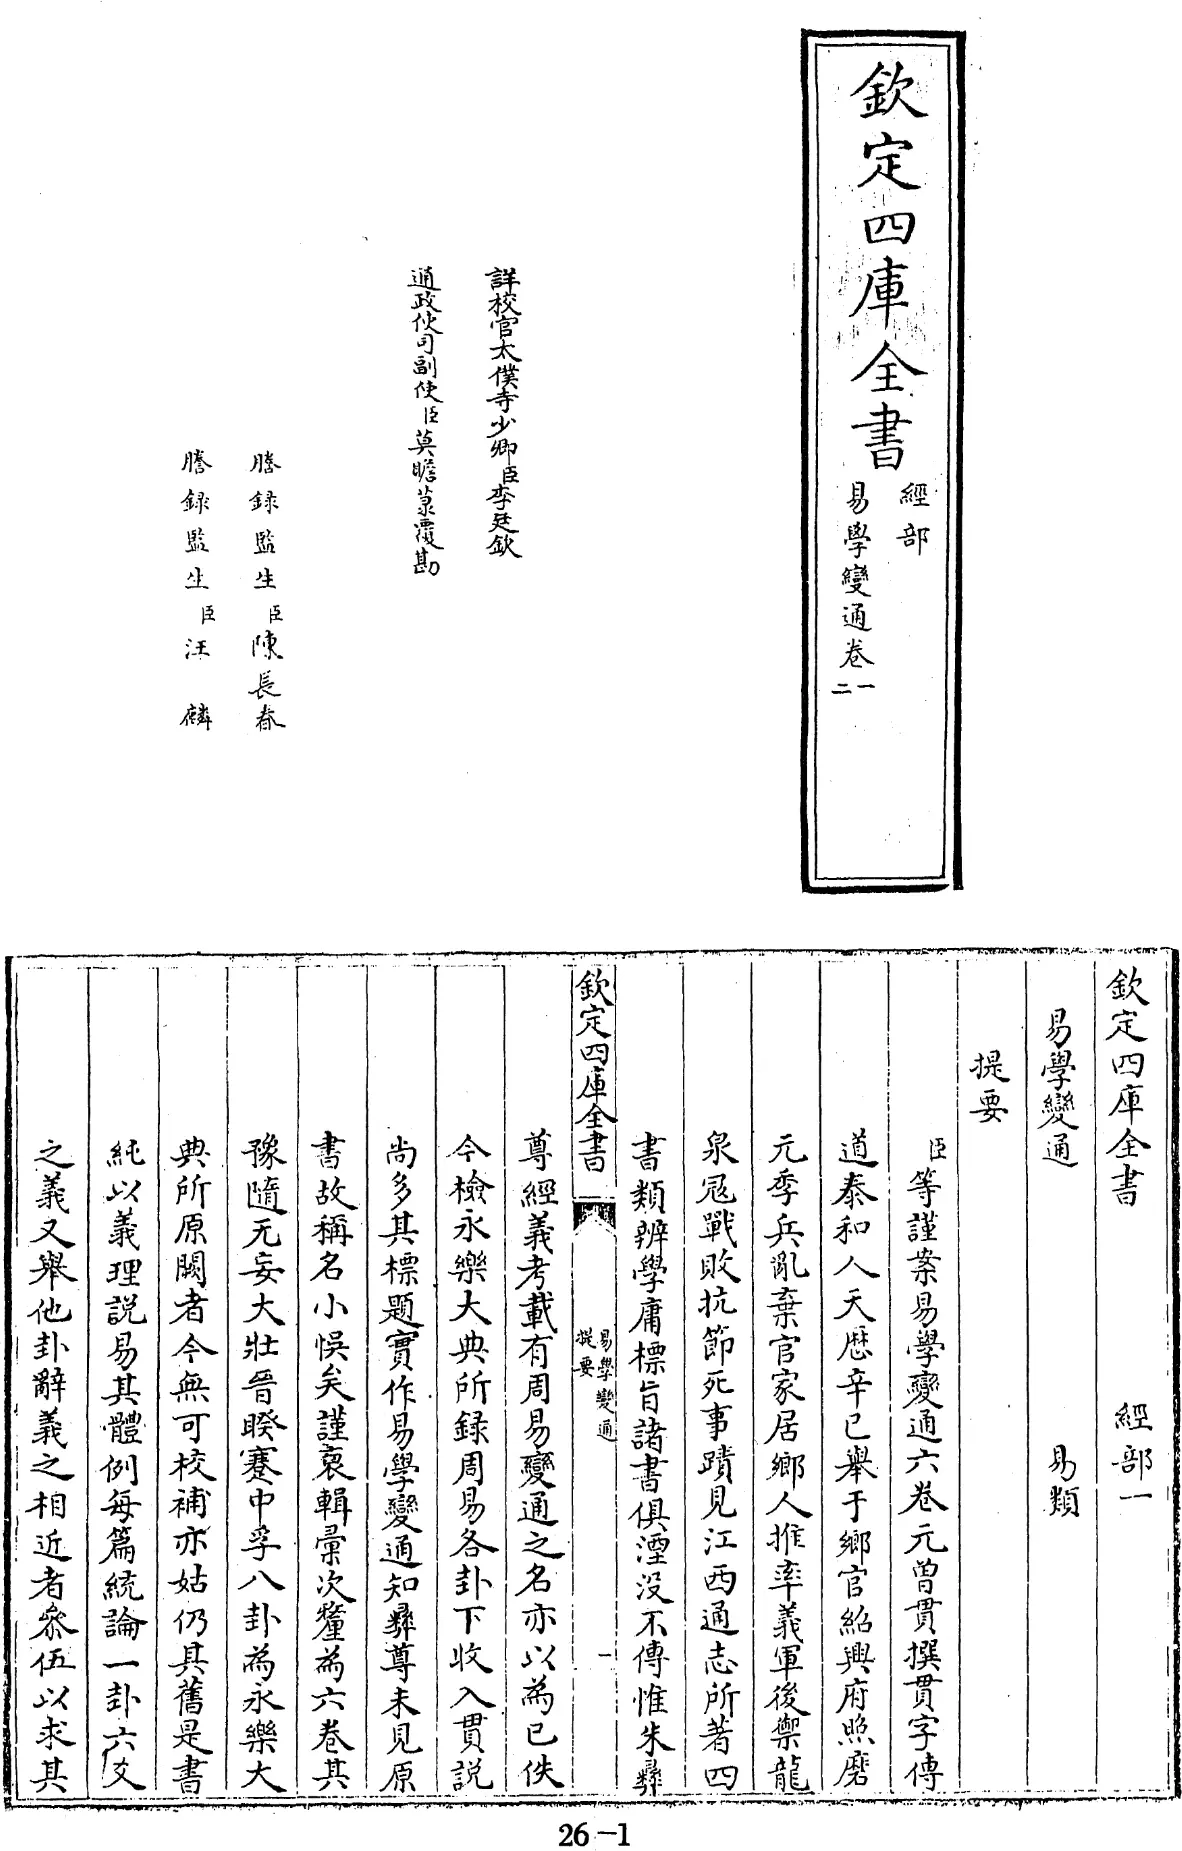 欽定四庫全書
經部
易學變通卷一
二
詳校官太僕寺少卿臣李廷欽
通政使司副使臣莫瞻菉覆勘
謄録監生臣陳長春
謄録監生臣汪麟
欽定四庫全書 經部一
易學變通 易類
提要
臣等謹案易學變通六卷元曾貫撰貫字傳
道泰和人天歴辛巳舉于鄉官紹興府照磨
元季兵亂棄官家居鄉人推率義軍後禦龍
泉冦戰敗抗節死事蹟見江西通志所著四
書類辨學庸標旨諸書俱湮没不傳惟朱彝
欽定四庫全書
易學變通
提要
一
尊經義考載有周易變通之名亦以為已佚
今檢永樂大典所録周易各卦下收入貫説
尚多其標題實作易學變通知彝尊未見原
書故稱名小悞矣謹裒輯彚次釐為六卷其
豫隨无妄大壯晉睽蹇中孚八卦為永樂大
典所原闕者今無可校補亦姑仍其舊是書
純以義理説易其體例每篇統論一卦六爻
之義又舉他卦辭義之相近者參伍以求其
26-1